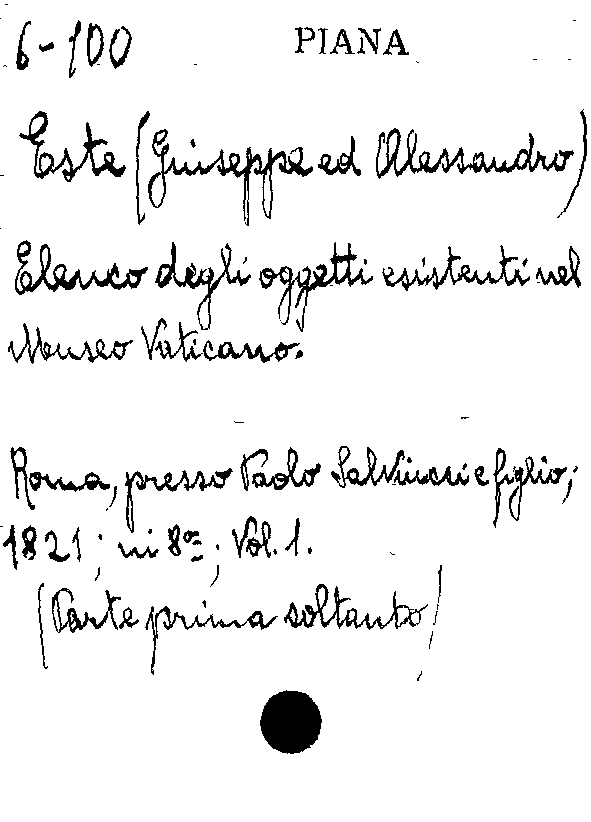 6-100 PIANA
Este (Giuseppe ed Alessandro)
Elenco degli oggetti esistenti nel
Museo Vaticano.
Roma, presso Paolo Salviucci e figlio;
1821; in 8º; Vol. 1.
(Parte prima soltanto)